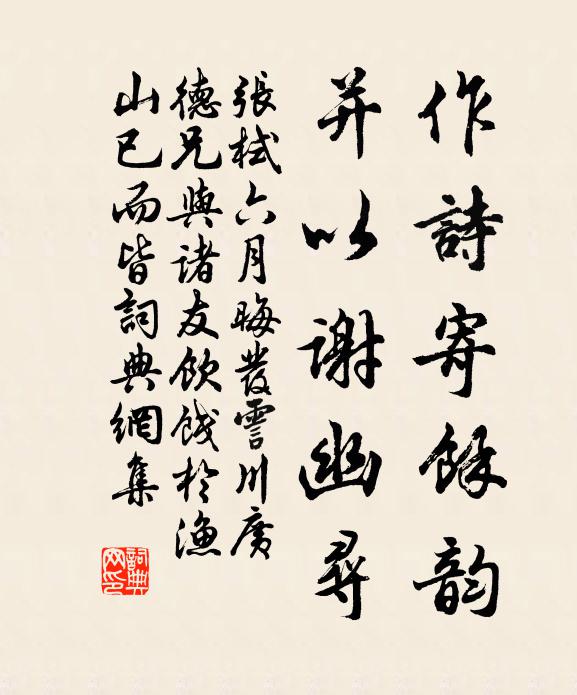 作詩寄餘韵
并以謝幽尋
張栻六月晦發霅川廣
德兄與諸友飲餞於漁
山已而皆詞典網集
詞典
网印